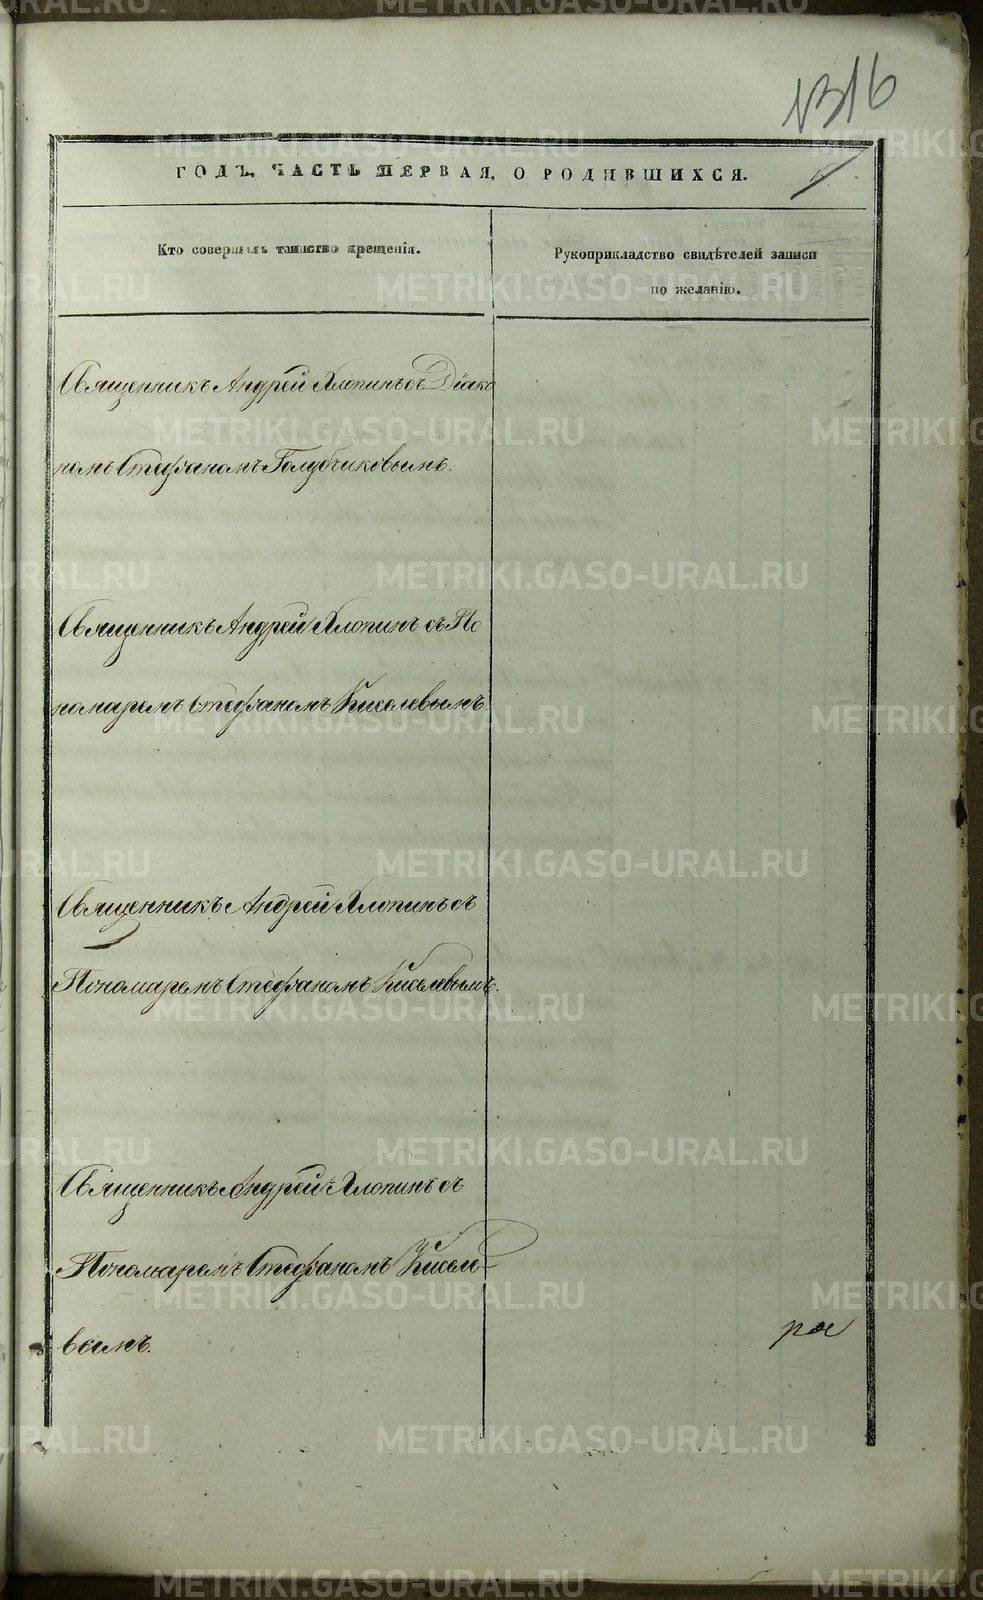 1316
ГОДЪ, ЧАСТЬ ПЕРВАЯ, О РОДИВШИХСЯ.
Кто совершалъ таинство крещенія.
Рукоприкладство свидѣтелей записи
по желанію.
Священникъ Андрей Хлопинъ съ Діако
номъ Стефаномъ Голубчиковымъ.
Священникъ Андрей Хлопинъ съ По
номаремъ Стефаномъ Киселевымъ.
Священникъ Андрей Хлопинъ съ
Пономаремъ Стефаномъ Киселевымъ.
Священникъ Андрей Хлопинъ съ
Пономаремъ Стефаномъ Киселе
вымъ.
METRIKI.GASO-URAL.RU